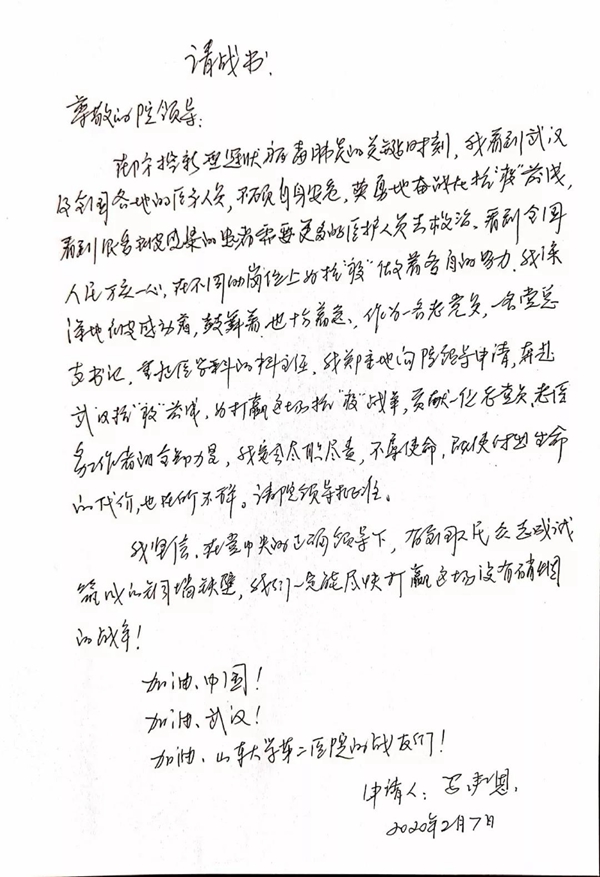 请战书
尊敬的院领导:
在抗击新型冠状病毒肺炎的关键时刻，我看到武汉
及全国各地的医务人员，不顾自身安危，英勇地奋战在抗"疫"前线，
看到很多被感染的患者需要更多的医护人员去救治。看到全国
人民万众一心，在不同的岗位上为抗"疫"做着各自的努力。我深
深地被感动着，鼓舞着，也十分着急。作为一名老党员，一名党总
支书记，重症医学科的科主任，我郑重地向院领导申请，奔赴
武汉抗"疫"前线，为打赢这场抗"疫"战争，贡献一位老党员，老医
务工作者的全部力量，我会尽职尽责，不辱使命，既使付出生命
的代价，也在所不辞。请院领导批准。
我坚信，在党中央的正确领导下，有全国人民众志成城
筑成的铜墙铁壁，我们一定能尽快打赢这场没有硝烟
的战争!
加油、中国!
加油、武汉!
加油、山东大学第二医院的战友们!
申请人:
2020年2月7日